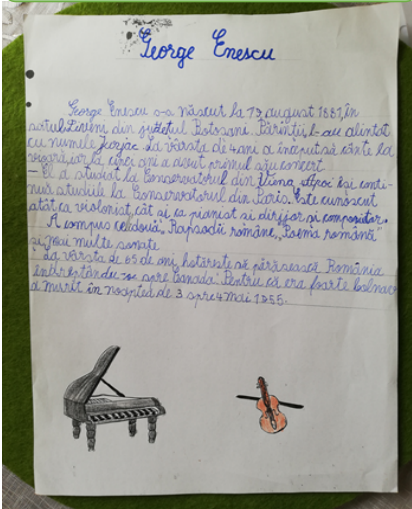 George Enescu
George Enescu s-a născut la 19 august 1881, în
satul Liveni din județul Botoșani. Părinții l-au alintat
cu numele Jurjac. La vârsta de 4 ani a început să cânte la
vioară, iar la cinci ani a avut primul său concert.
- El a studiat la Conservatorul din Viena. Apoi își conti-
nuă studiile la Conservatorul din Paris. Este cunoscut
atât ca violonist, cât și ca pianist și dirijor și compozitor.
A compus cele două „Rapsodii române, „Poema română"
și mai multe sonate
La vârsta de 65 de ani, hotărește să părăsească România
îndreptându-se spre Canada. Pentru că era foarte bolnav
a murit în noaptea de 3 spre 4 mai 1955.